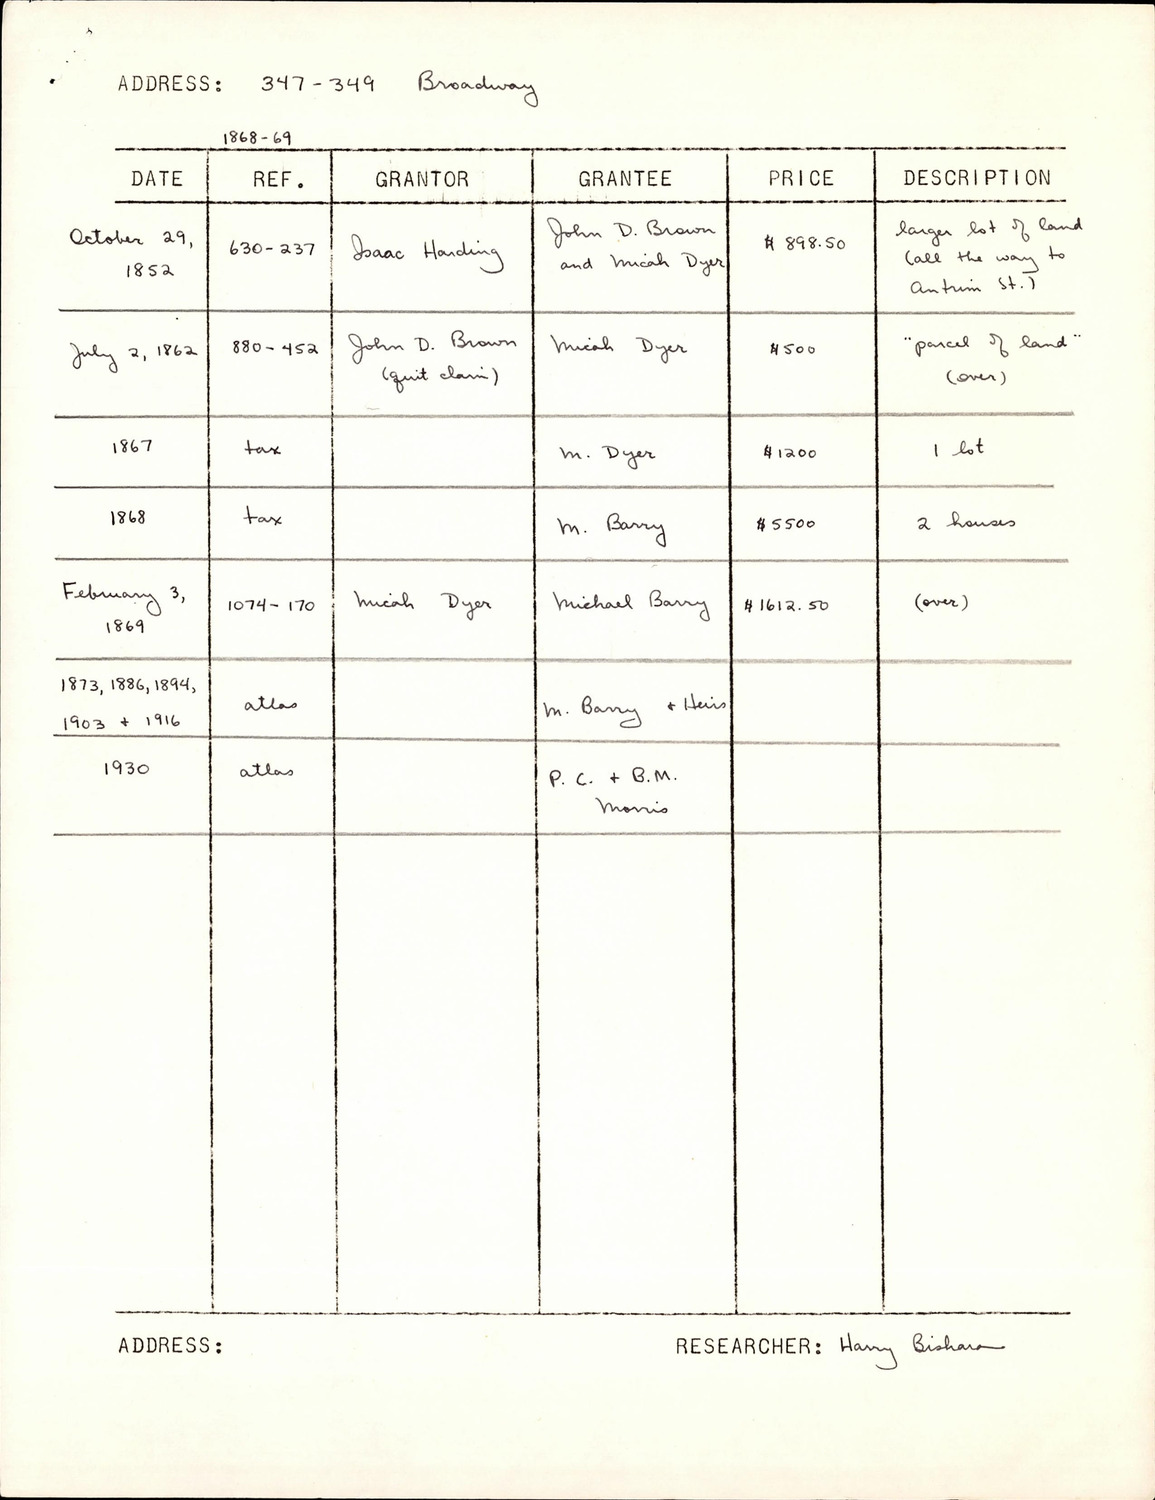 ADDRESS: 347-349 Broadway
1868-69
DATE REF. GRANTOR GRANTEE PRICE DESCRIPTION
October 29, 1852 630-237 Isaac Harding John D. Brown and Micah Dyer $898.50 larger lot of land (all the way to Antrim St.)
July 2, 1862 880-452 John D. Brown (quit claim) Micah Dyer $500 "parcel of land" (over)
1867 tax M. Dyer $1200 1 lot
1868 tax M. Barry $5500 2 houses
February 3, 1869 1074-170 Micah Dyer Michael Barry $1612.50 (over)
1873, 1886, 1894, 1903 + 1916 atlas M. Barry + Heirs
1930 atlas P. C. + B.M. Morris
ADDRESS: RESEARCHER: Harry Bishara